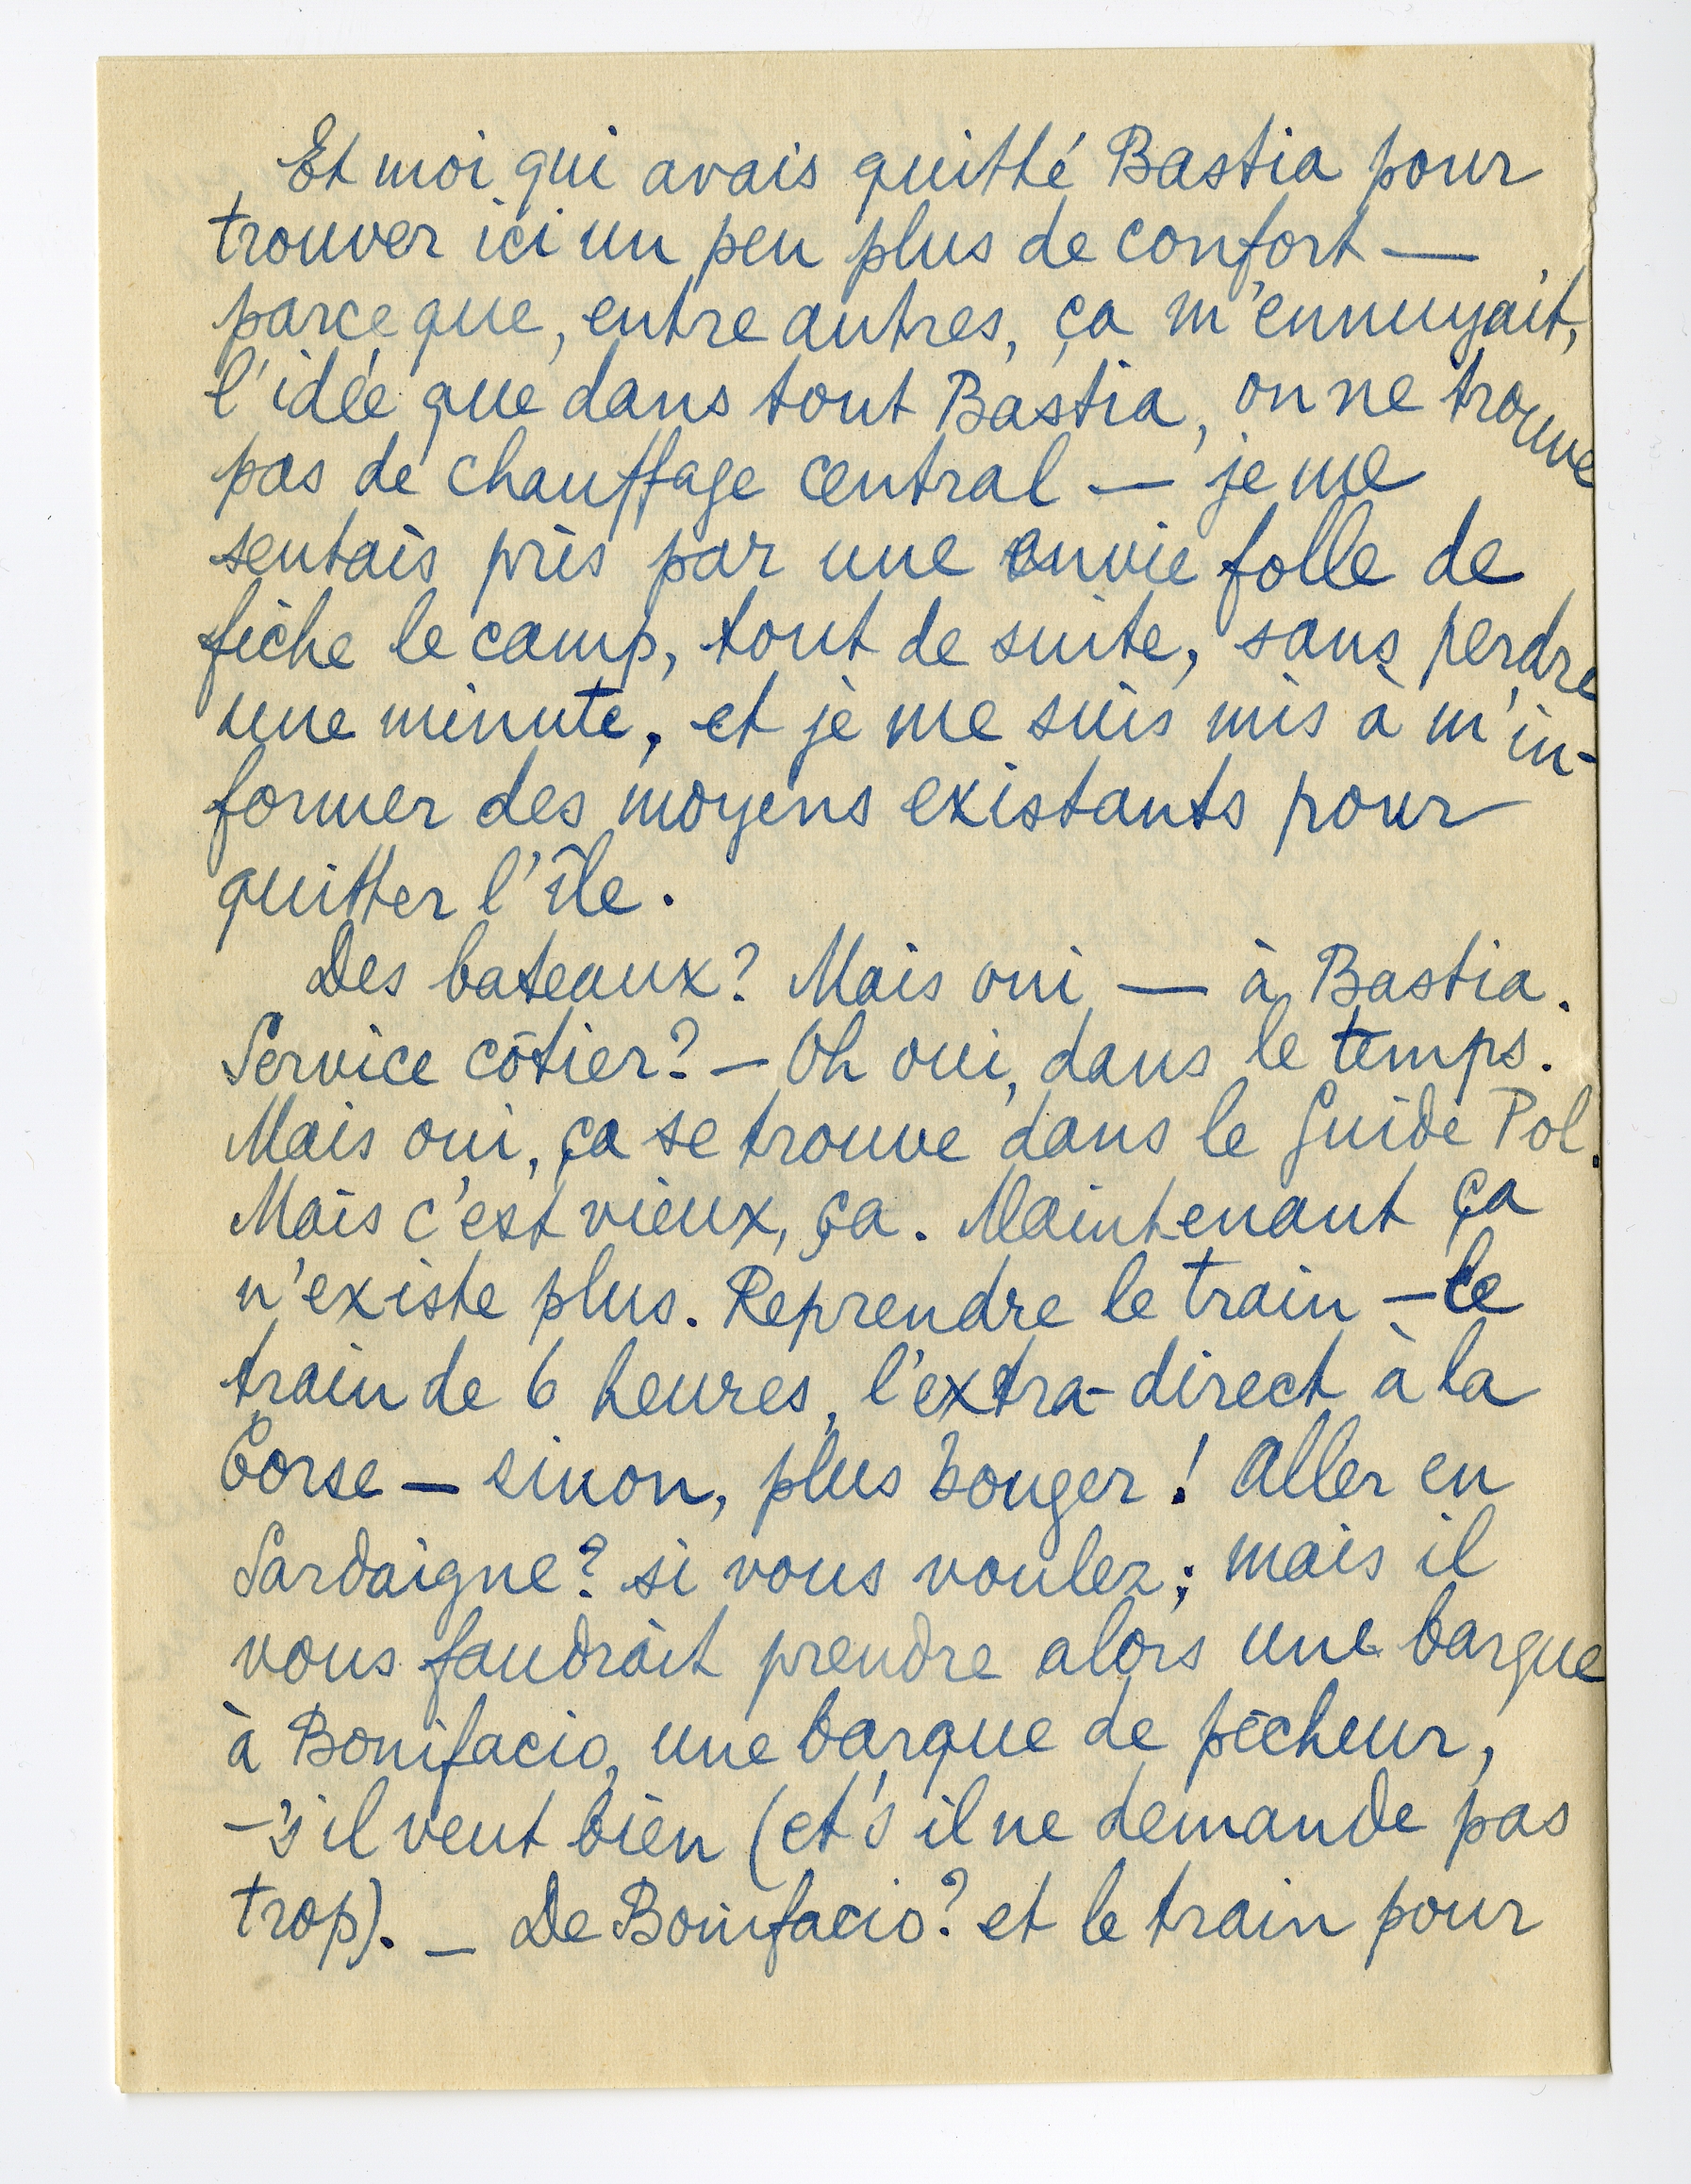 Et moi qui avais quitté Bastia pour
trouver ici un peu plus de confort —
parce que, entre autres, ça m'ennuyait,
l'idée que dans tout Bastia, on ne trouve
pas de chauffage central — je me
sentais pris par une envie folle de
fiche le camp, tout de suite, sans perdre
une minute, et je me suis mis à m'in-
former des moyens existants pour
quitter l'île.
Des bateaux? Mais oui — à Bastia.
Service côtier? — Oh oui, dans le temps.
Mais oui, ça se trouve dans le Guide Pol.
Mais c'est vieux, ça. Maintenant ça
n'existe plus. Reprendre le train — le
train de 6 heures, l'extra-direct à la
Corse — sinon, plus bouger! Aller en
Sardaigne? si vous voulez; mais il
vous faudrait prendre alors une barque
à Bonifacio, une barque de pêcheur,
— s'il veut bien (et s'il ne demande pas
trop). — De Bonifacio? et le train pour